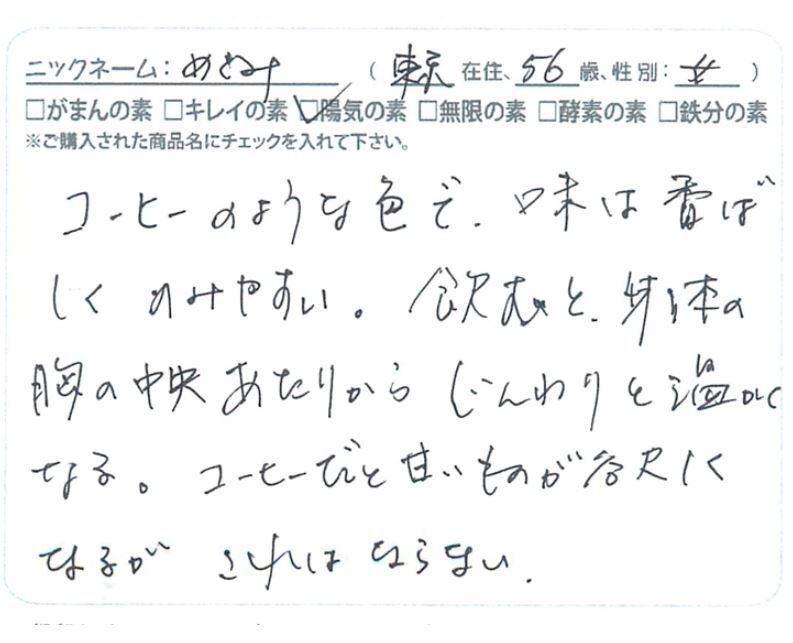 ニックネーム：めぐみ （東京在住、56歳、性別：女）
□がまんの素 □キレイの素 ☑陽気の素 □無限の素 □酵素の素 □鉄分の素
※ご購入された商品名にチェックを入れて下さい。
コーヒーのような色で、味は香ば
しくのみやすい。飲むと、身体の
胸の中央あたりからじんわりと温かく
なる。コーヒーだと甘いものが欲しく
なるが これは ならない.